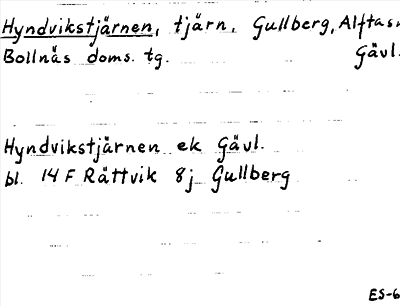 Hyndvikstjärnen, tjärn, Gullberg, Alftas
Bollnäs doms. tg. Gävl.
Hyndvikstjärnen ek Gävl.
bl. 14 F Rättvik 8j Gullberg
ES-6